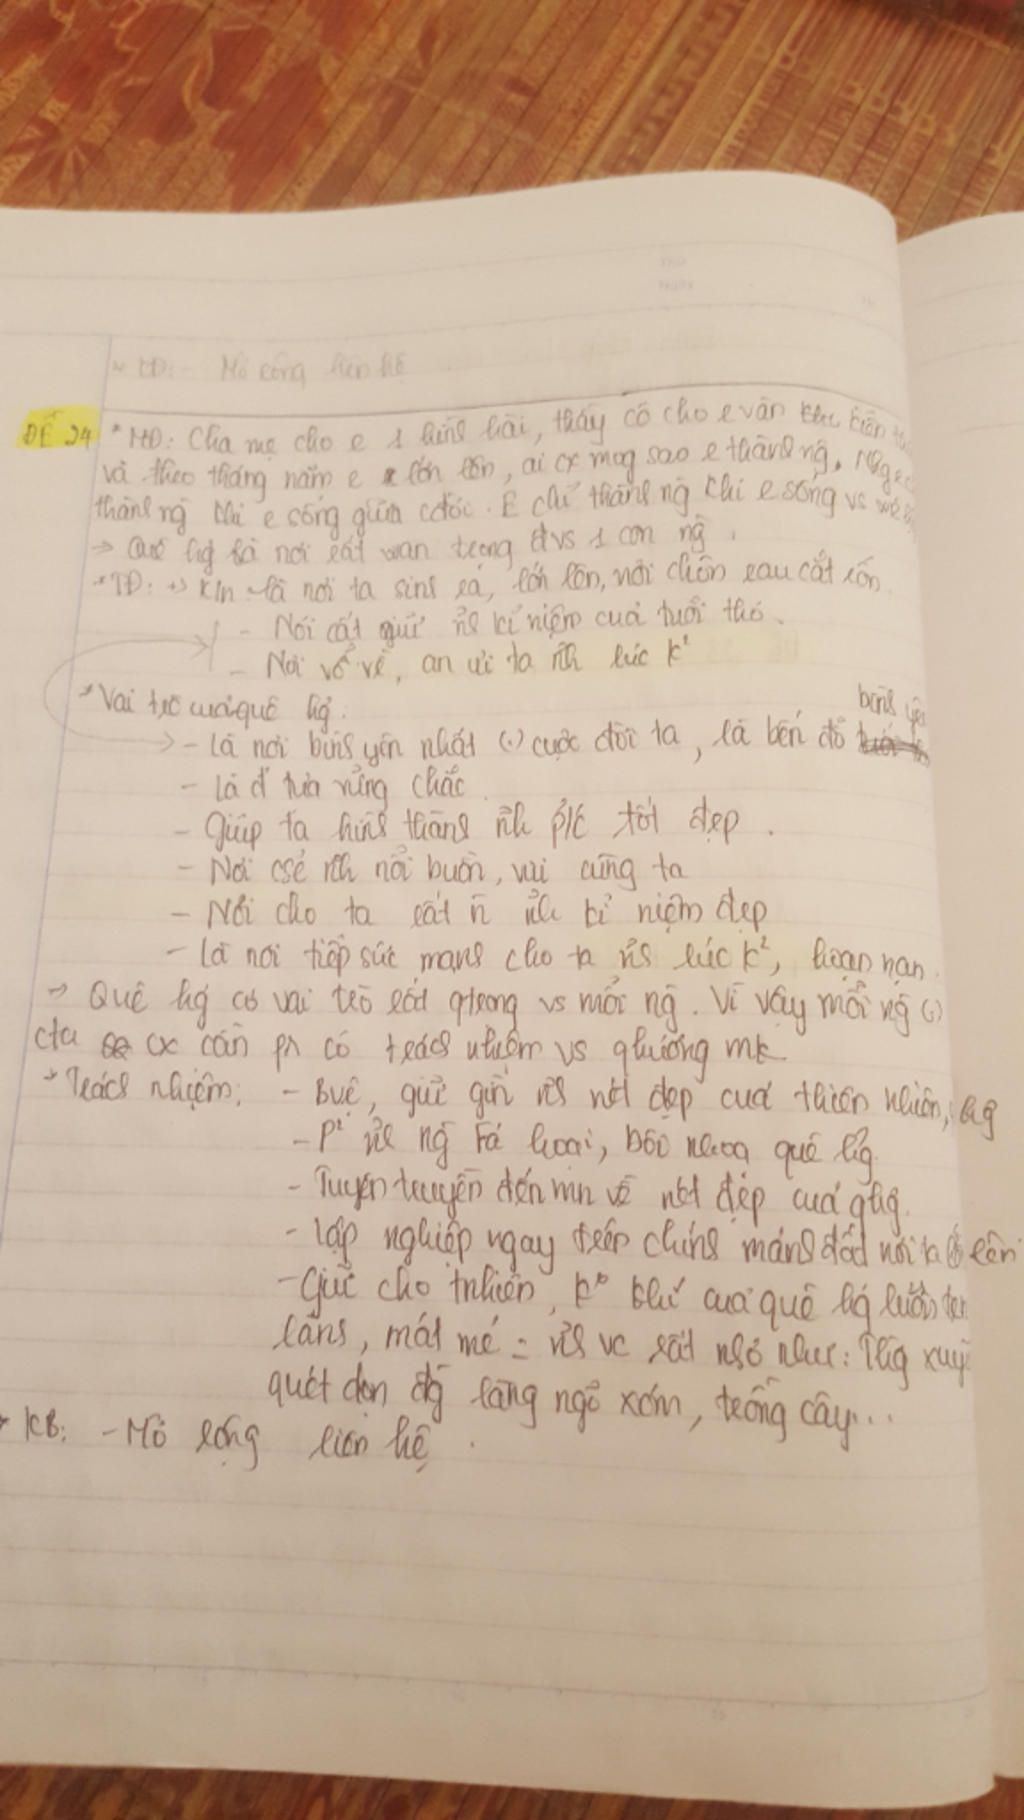 * TĐ: - Mở rộng liên hệ
ĐỀ 24 * MĐ: Cha mẹ cho e 1 hình hài, thầy cô cho e vàn kiến
và theo tháng năm e lớn lên, ai cx mog sao e thành ng.
thành ng khi e sống giữa cđời. E chỉ thành ng khi e sống vs
=> Quê hg là nơi rất wan trọng đvs 1 con ng.
* TĐ: -> K/n là nơi ta sinh ra, lớn lên, nơi chôn rau cắt rốn.
- Nơi cất giữ nh kỉ niệm của tuổi thơ.
- Nơi vỗ về, an ủi ta nh lúc k²
* Vai trò của quê hg.
bình yên
- Là nơi bình yên nhất (.) cuộc đời ta, là bến đỗ
- Là đ tựa vững chắc.
- Giúp ta hình thành nh p/c tốt đẹp.
- Nơi csẻ nh nỗi buồn, vui cùng ta
- Nơi cho ta rất n nh kỉ niệm đẹp
- Là nơi tiếp sức mạnh cho ta nh lúc k², hoạn nạn.
=> Quê hg có vai trò rất qtrong vs mỗi ng. Vì vậy mỗi ng (.)
cta cx cần pn có trách nhiệm vs qhương mk
* Trách nhiệm: - Bvệ, giữ gìn nh nét đẹp của thiên nhiên, hg
- P² nh ng fá hoại, bôi nhoạ quê hg.
- Tuyên truyền đến mn về nét đẹp của qhg.
- Lập nghiệp ngay trên chính mảnh đất nơi ta lên
- Giữ cho tnhiên, k° khí của quê hg luôn
lành, mát mẻ = nh vc rất nhỏ như: Thg
quét dọn đg làng ngõ xóm, trồng cây...
* KB: - Mở rộng liên hệ.